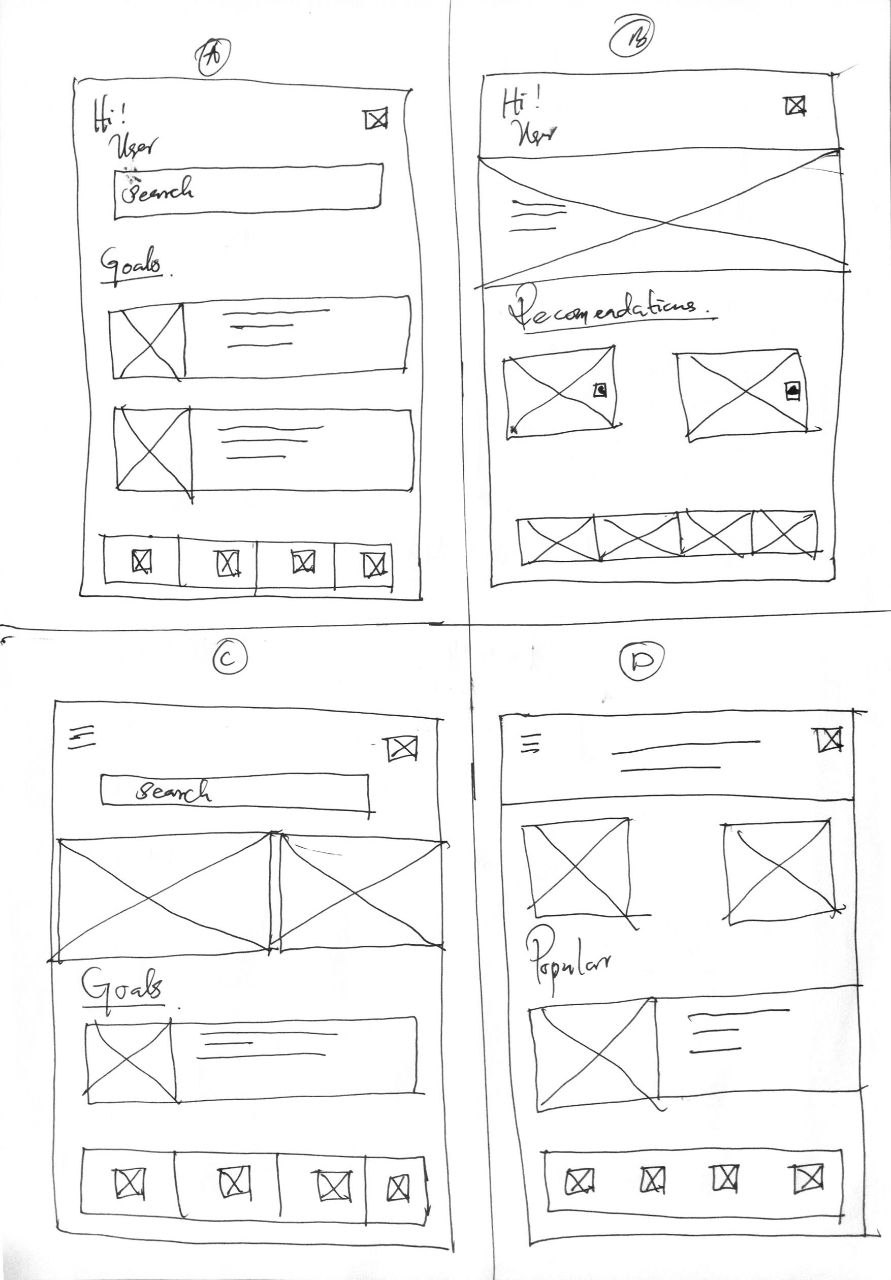 A
Hi!
User
Search
Goals.
B
Hi!
User
Recomendations.
C
Search
Goals.
D
Popular